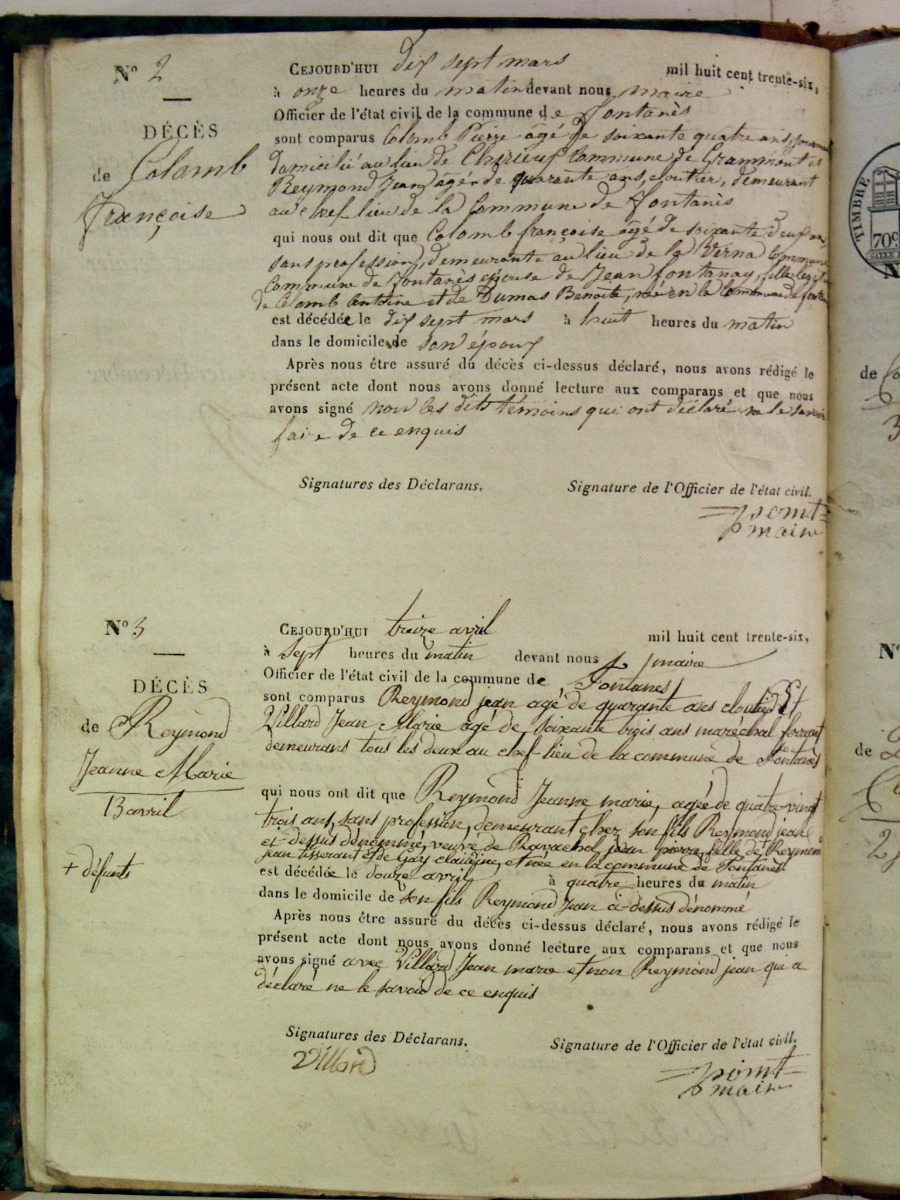 N° 2
DÉCÈS
de Colomb
Françoise
CEJOURD'HUI dix sept mars mil huit cent trente-six,
à onze heures du matin devant nous maire
Officier de l'état civil de la commune de fontanès
sont comparus Colomb Pierre agé de soixante quatre ans
domicilié au lieu de Commune de Grammont et
Reymond Jean agé de quarante ans, cloutier, demeurant
au chef lieu de la Commune de fontanès
qui nous ont dit que Colomb françoise agé de soixante deux ans
sans profession, demeurante au lieu de la Verna Commune
Commune de fontanès epouse de Jean fontanay, fille
de Colomb Antoine et de Dumas Benoite, née en la Commune de
est décédée le dix sept mars à huit heures du matin
dans le domicile de son époux
Après nous être assuré du décès ci-dessus déclaré, nous avons rédigé le
présent acte dont nous avons donné lecture aux comparans et que nous
avons signé non les dits témoins qui ont déclaré ne le savoir
faire de ce enquis
Signatures des Déclarans. Signature de l'Officier de l'état civil.
maire
N° 3
DÉCÈS
de Reymond
Jeanne Marie
13 avril
+ défunts
CEJOURD'HUI treize avril mil huit cent trente-six,
à sept heures du matin devant nous maire
Officier de l'état civil de la commune de Fontanès
sont comparus Reymond jean agé de quarante ans cloutier Et
Villard Jean Marie agé de soixante trois ans maréchal ferrant
demeurans tous les deux au chef-lieu de la commune de Fontanès
qui nous ont dit que Reymond Jeanne marie, agée de quatre-vingt
trois ans, sans profession, demeurant chez son fils Reymond jean
ci-dessus dénommé, veuve de Ravachol jean pierre, fille de Reymond
jean tisserant et de Gay claudine, + née en la commune de Fontanès
est décédée le douze avril à quatre heures du matin
dans le domicile de son fils Reymond Jean ci-dessus dénommé
Après nous être assuré du décès ci-dessus déclaré, nous avons rédigé le
présent acte dont nous avons donné lecture aux comparans et que nous
avons signé avec Villard Jean marie et non Reymond jean qui a
déclaré ne le savoir de ce enquis
Signatures des Déclarans. Signature de l'Officier de l'état civil.
Villard
maire
TIMBRE
70c
de
de